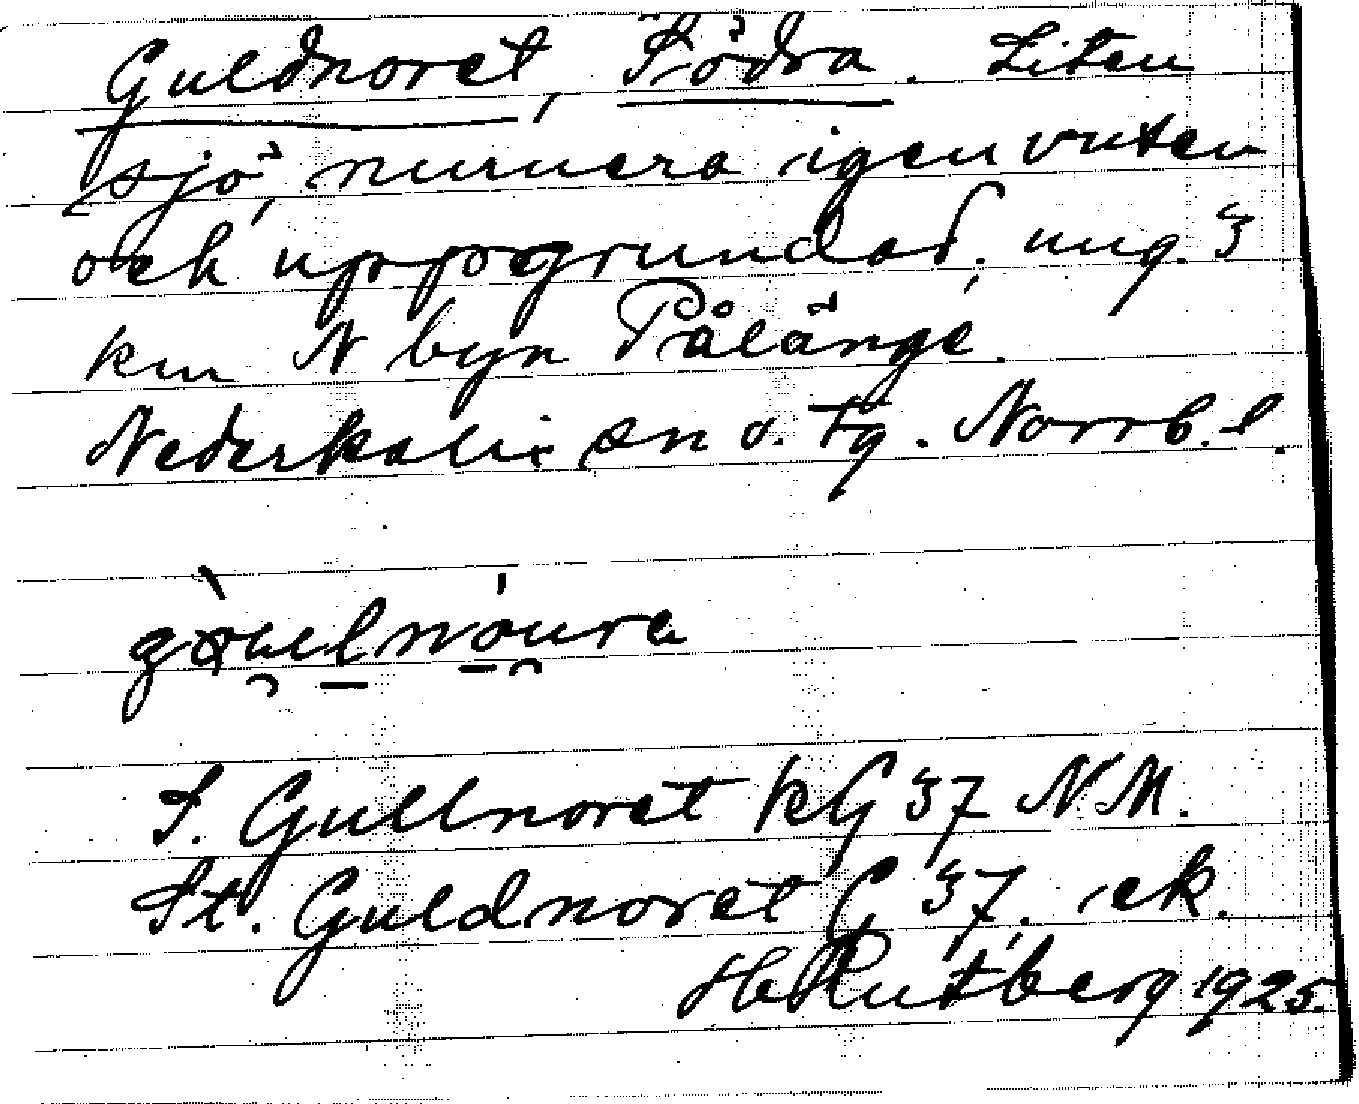 Guldnoret, Södra. Liten
sjö, numera igenvuxen
och uppgrundad, ung. 3
km N byn Pålänge.
Nederkalix sn o. tg. Norrb. l.
S. Gullnoret kG 37 NM.
St. Guldnoret G 37. ek.
HRutberg 1925.